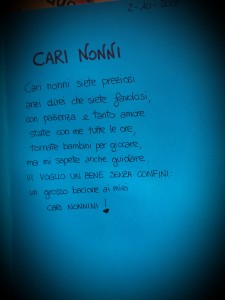 2-10-
CARI NONNI
Cari nonni siete preziosi
anzi direi che siete favolosi,
con pazienza e tanto amore
state con me tutte le ore,
tornate bambini per giocare,
ma mi sapete anche guidare,
VI VOGLIO UN BENE SENZA CONFINI:
un grosso bacione ai miei
CARI NONNINI!